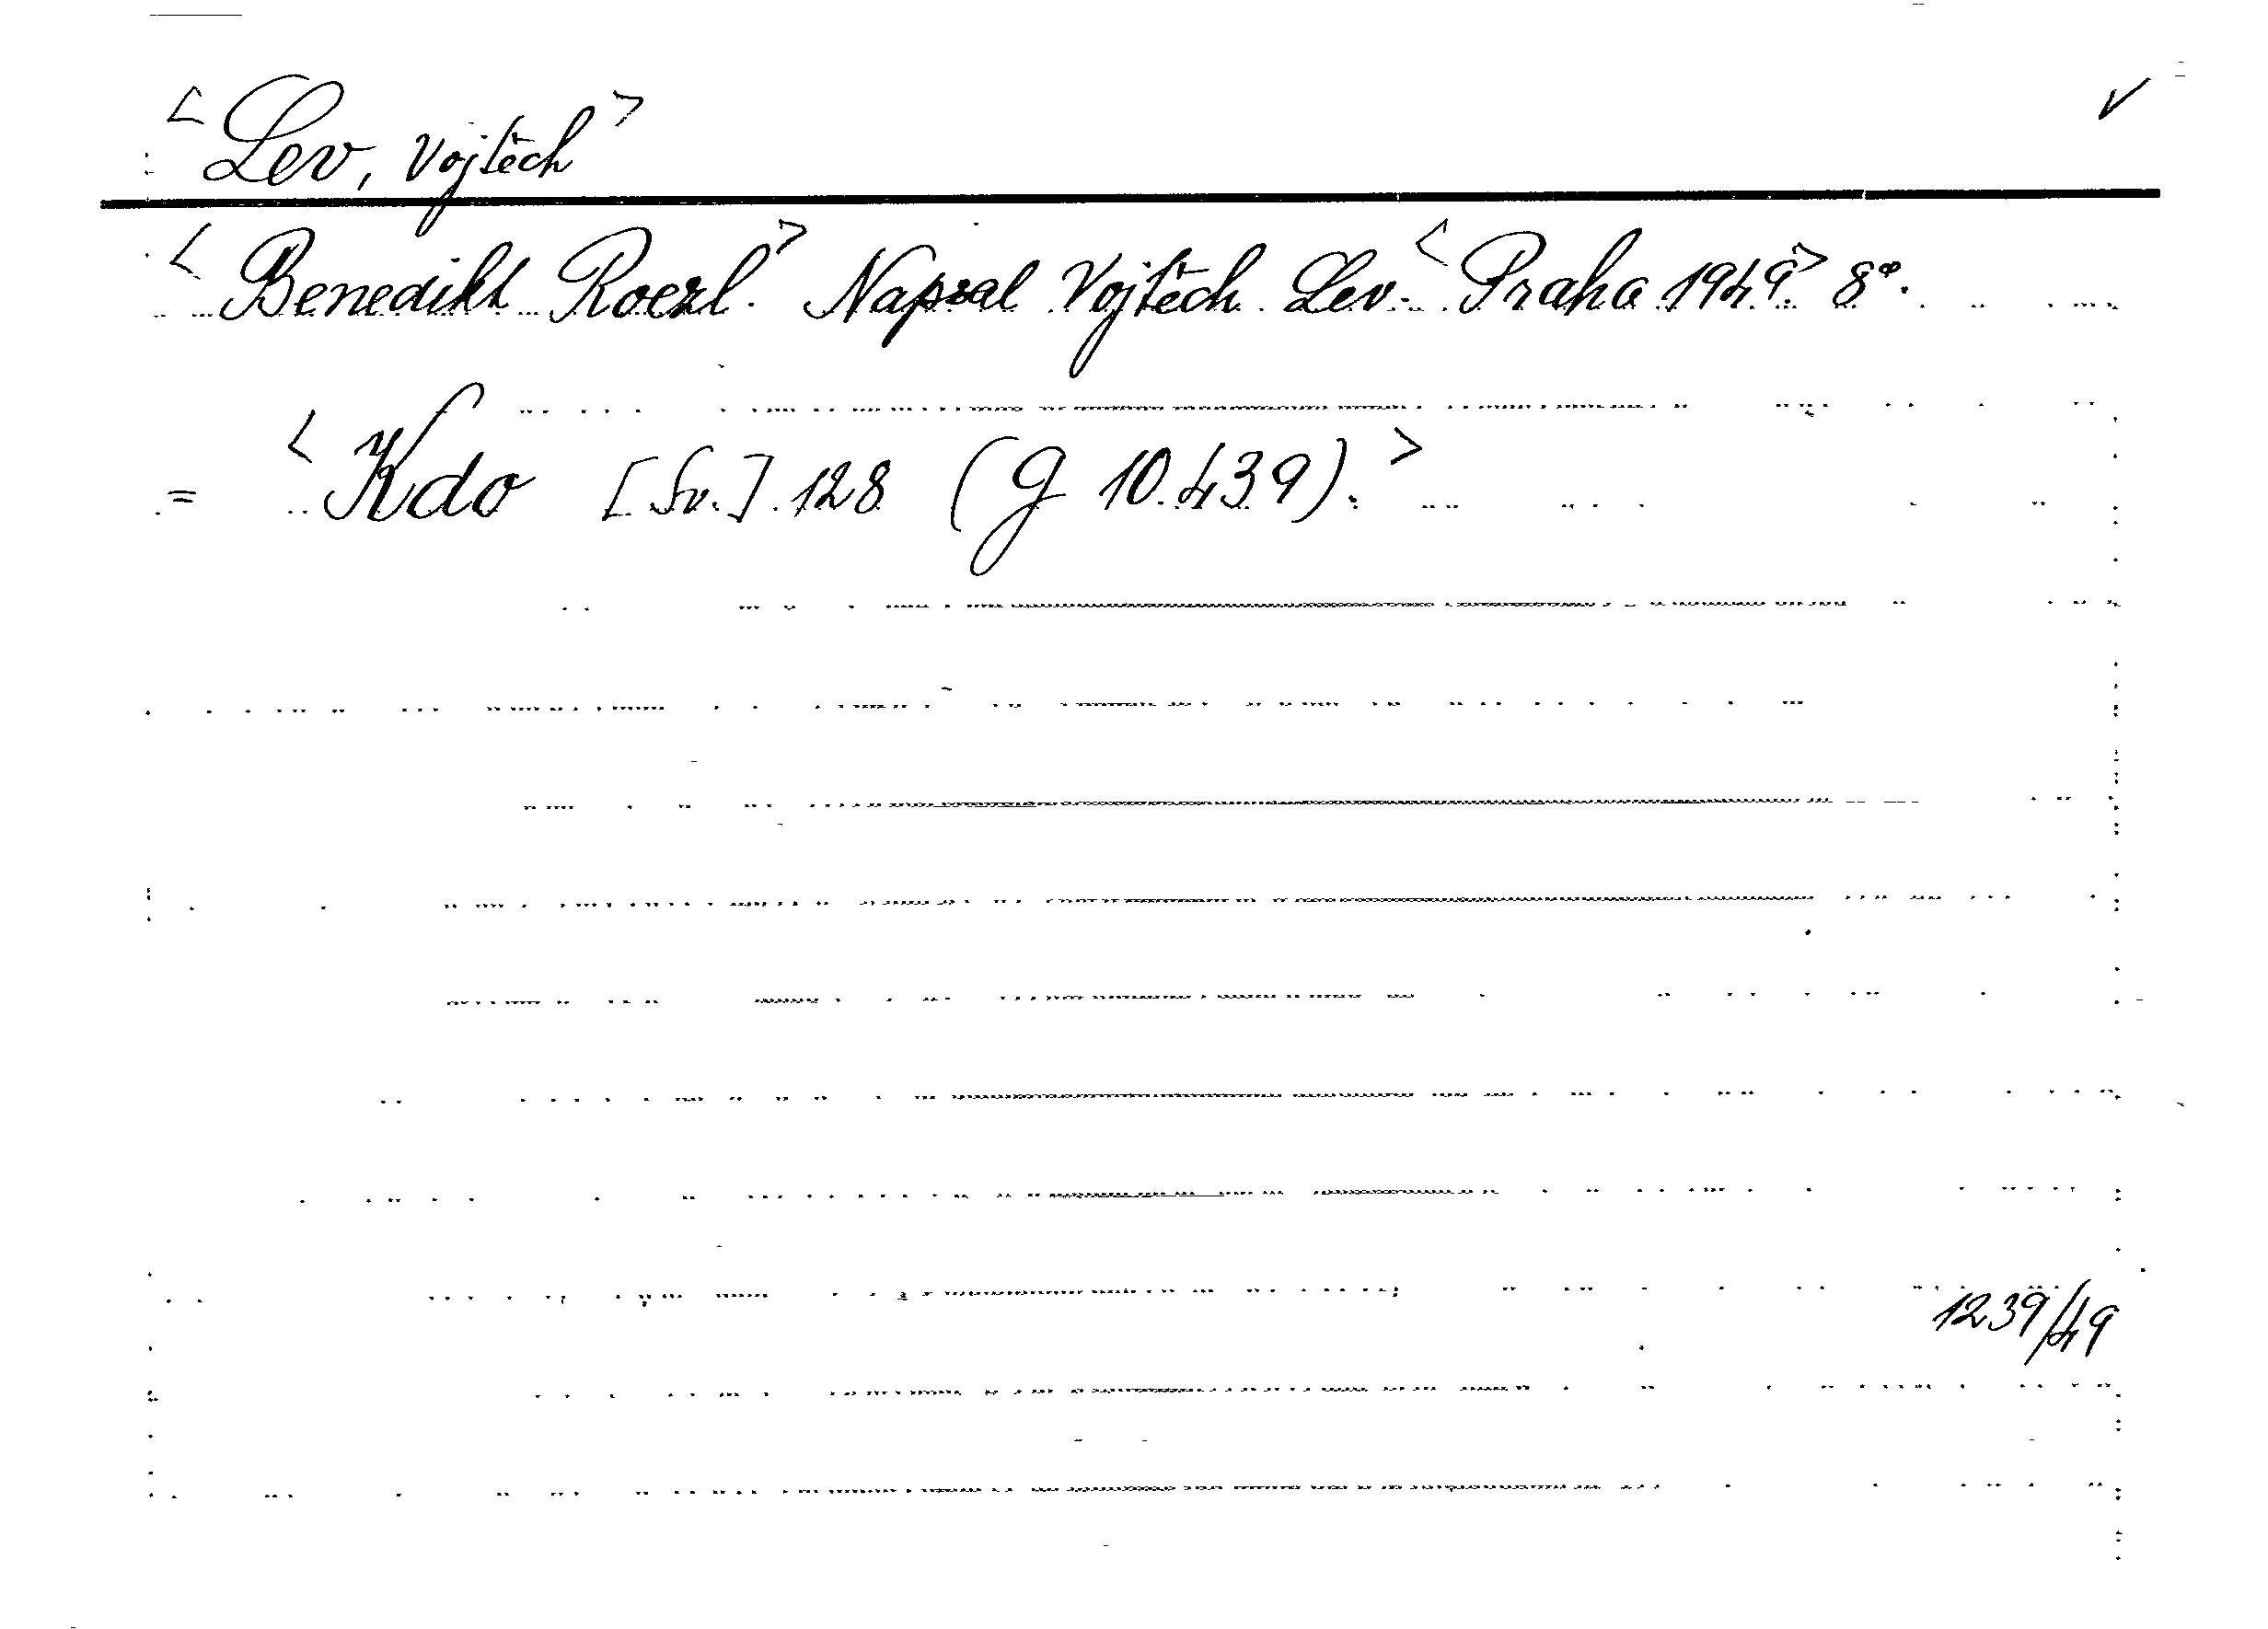 <Lev, Vojtěch> ✓
<Benedikt Roezl.> Napsal Vojtěch Lev. <Praha 1949.> 8°.
= <Kdo [Sv.] 128 (g 10.439).>
1239/49